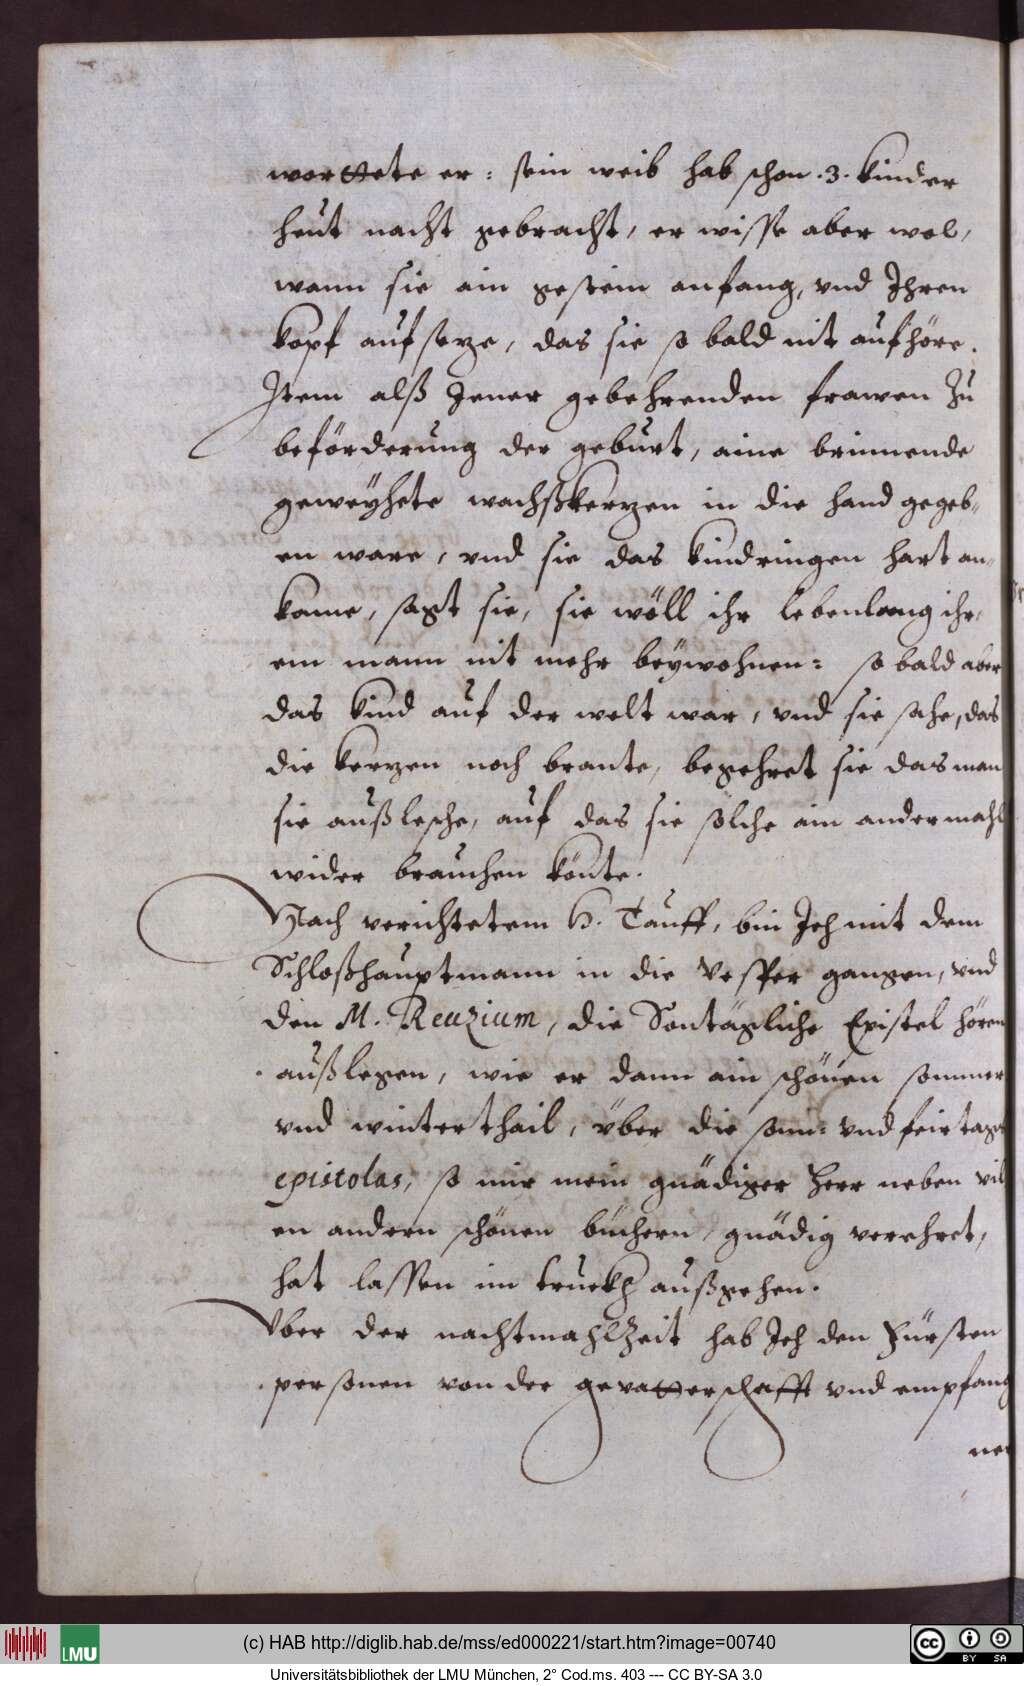 worttete er: sein weib hab schon .3. kinder
heut nacht gebracht, er wisse aber wol,
wann sie ain gestein anfang, vnd Ihren
kopf aufseze, das sie so bald nit aufhöre.
Item alß Jener gebehrenden frawen Zu
beförderung der geburt, aine brinnende
geweÿhete wachßkerzen in die hand gegeb-
en ware, vnd sie das kindringen hart an-
kame, sagt sie, sie wöll ihr lebenlang ihr-
em mann nit mehr beÿwohnen: so bald aber
das kind auf der welt war, vnd sie sahe, das
die kerzen noch brante, begehret sie das man
sie außlesche, auf das sie solche ain andermahl
wider brauchen könte.
Nach verichtetem H. Tauff, bin Ich mit dem
Schloßhauptmann in die Vesper gangen, vnd
den M. Reuzium, die Sontägliche Epistel hören
außlegen, wie er dann ain schönen sommer
vnd winterthail, über die sonn- vnd feirtags
epistolas, so mir mein gnädiger Herr neben vil
en andern schönen büchern, gnädig verehret,
hat lassen im truckh außgehen.
Vber der nachtmahlZeit hab Ich den Fürsten
personen von der gevatterschafft vnd empfang
ner
(c) HAB http://diglib.hab.de/mss/ed000221/start.htm?image=00740
LMU
cc BY SA
Universitätsbibliothek der LMU München, 2° Cod.ms. 403 --- CC BY-SA 3.0